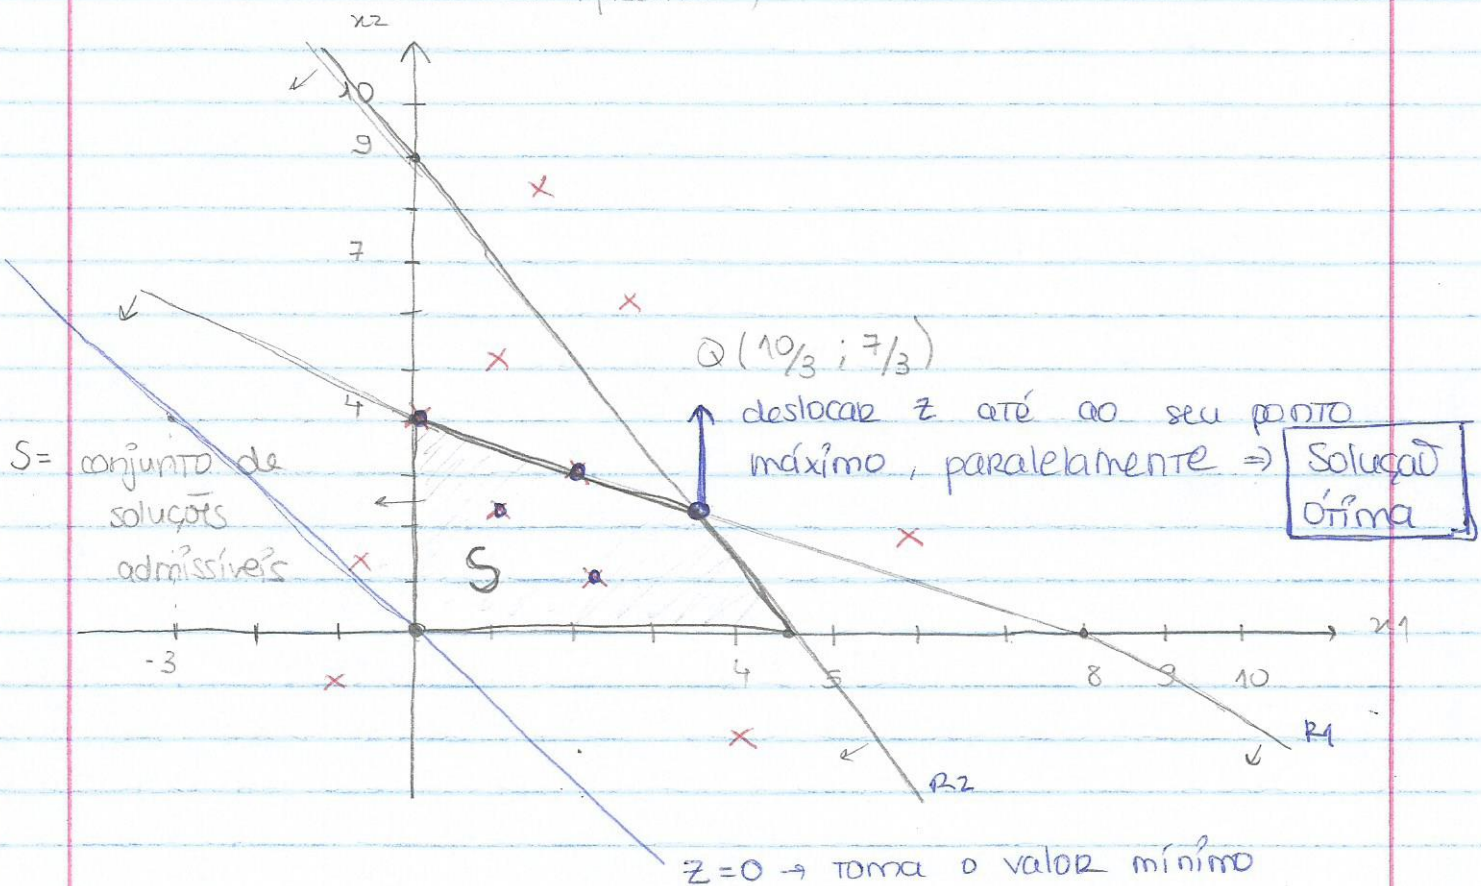 x2
10
9
7
Q (10/3 ; 7/3)
4
deslocar z até ao seu ponto
máximo, paralelamente ⇒ Solução
Ótima
S = conjunto de
soluções
admissíveis
S
x1
-3
4
5
8
9
10
R1
R2
z=0 → toma o valor mínimo